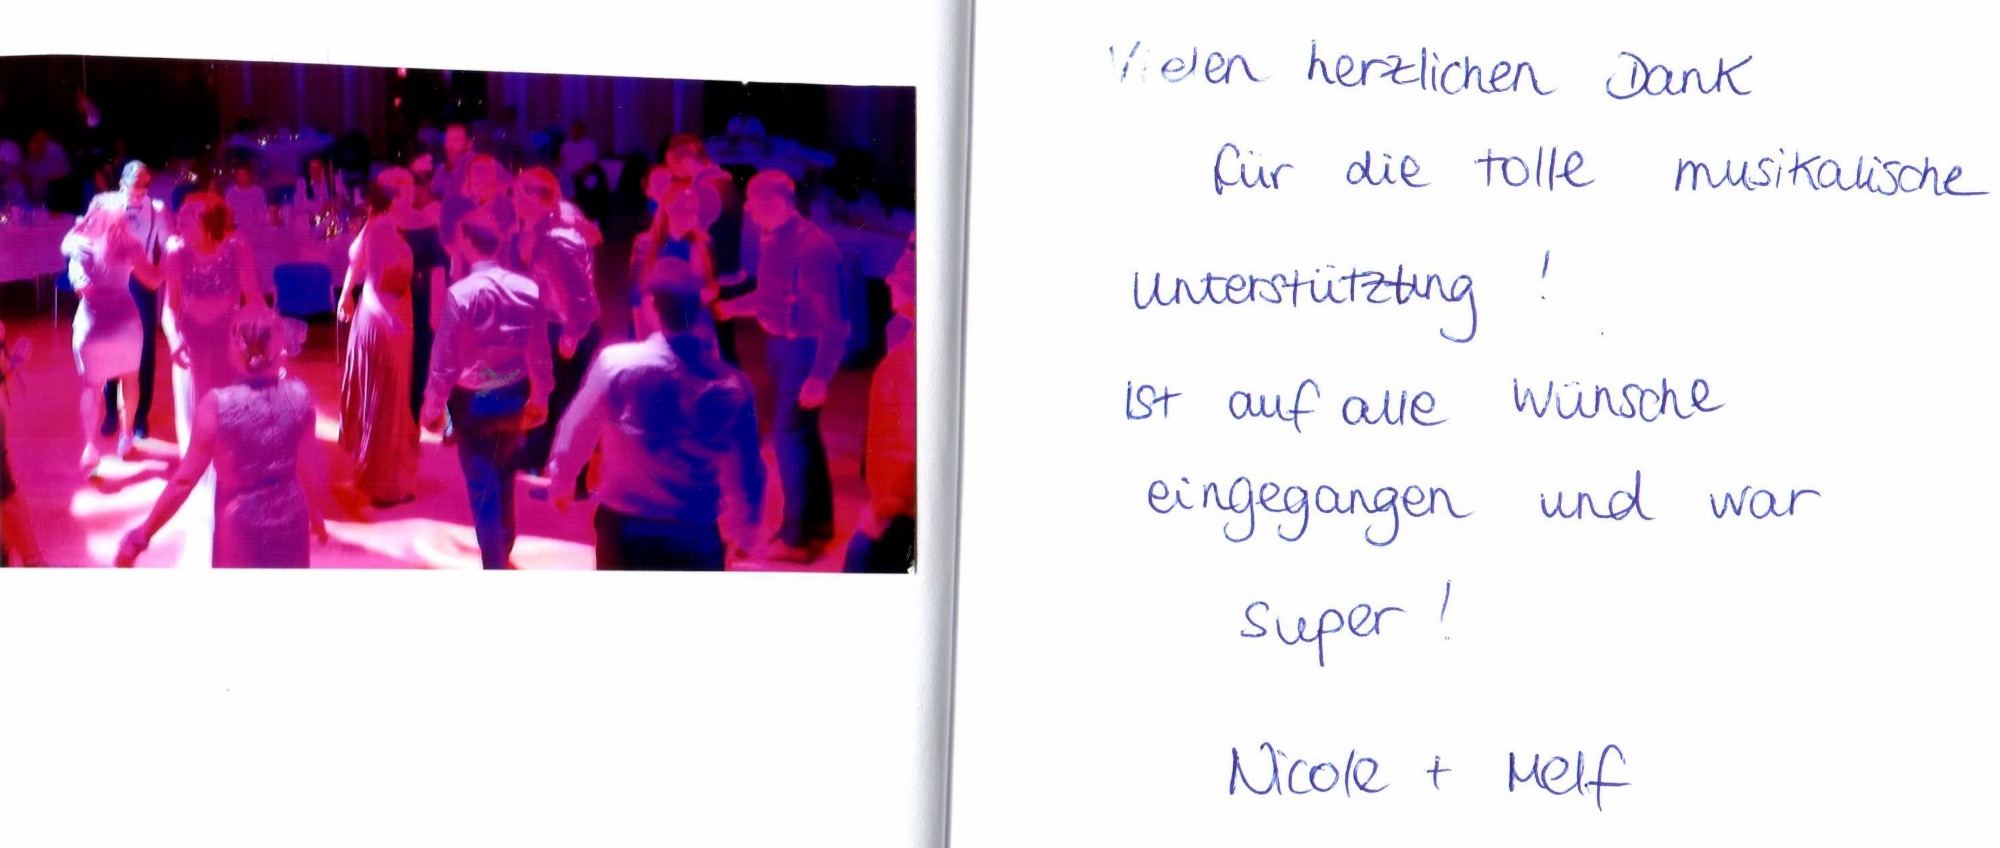 Vielen herzlichen Dank
für die tolle musikalische
Unterstützung !
Ist auf alle Wünsche
eingegangen und war
super !
Nicole + Melf